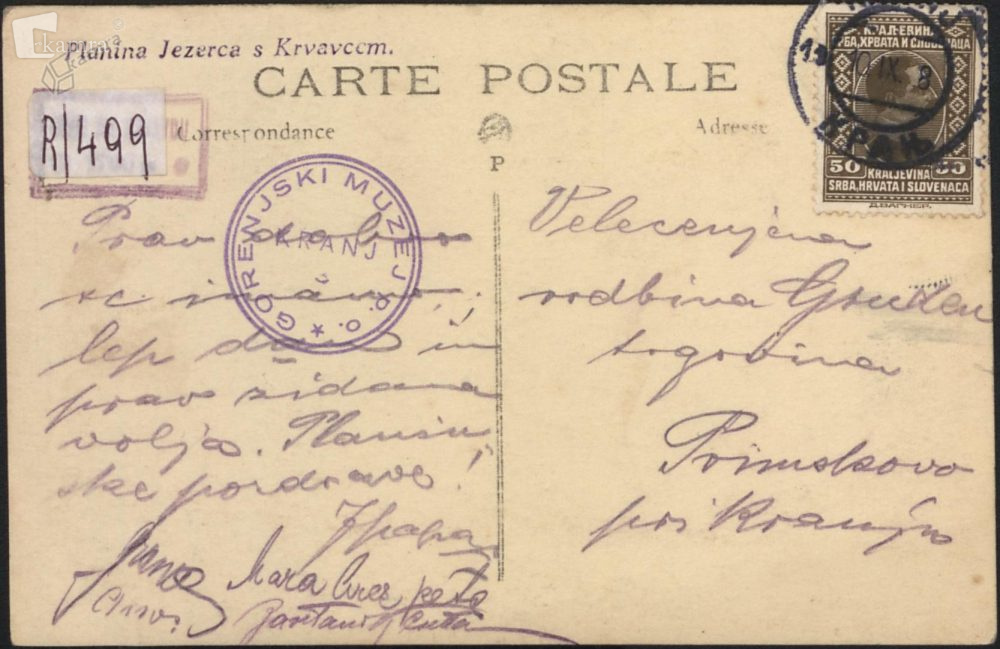 kamra
Planina Jezerca s Krvavcem.
CARTE POSTALE
R/499
Correspondance
Adresse
P
GORENJSKI MUZEJ P.O.
KRANJ
Prav dobro
se imamo,
lep dan in
prav židana
volja. Planin
ske pozdrave!
Mara
Velecenjena
rodbina
trgovina
Primskovo
pri Kranju
IX. 8
КРАЊ
КРАЉЕВИНА
СРБА, ХРВАТА И СЛОВЕНАЦА
50 50
KRALJEVINA
SRBA, HRVATA I SLOVENACA
Д.ВАГНЕР.